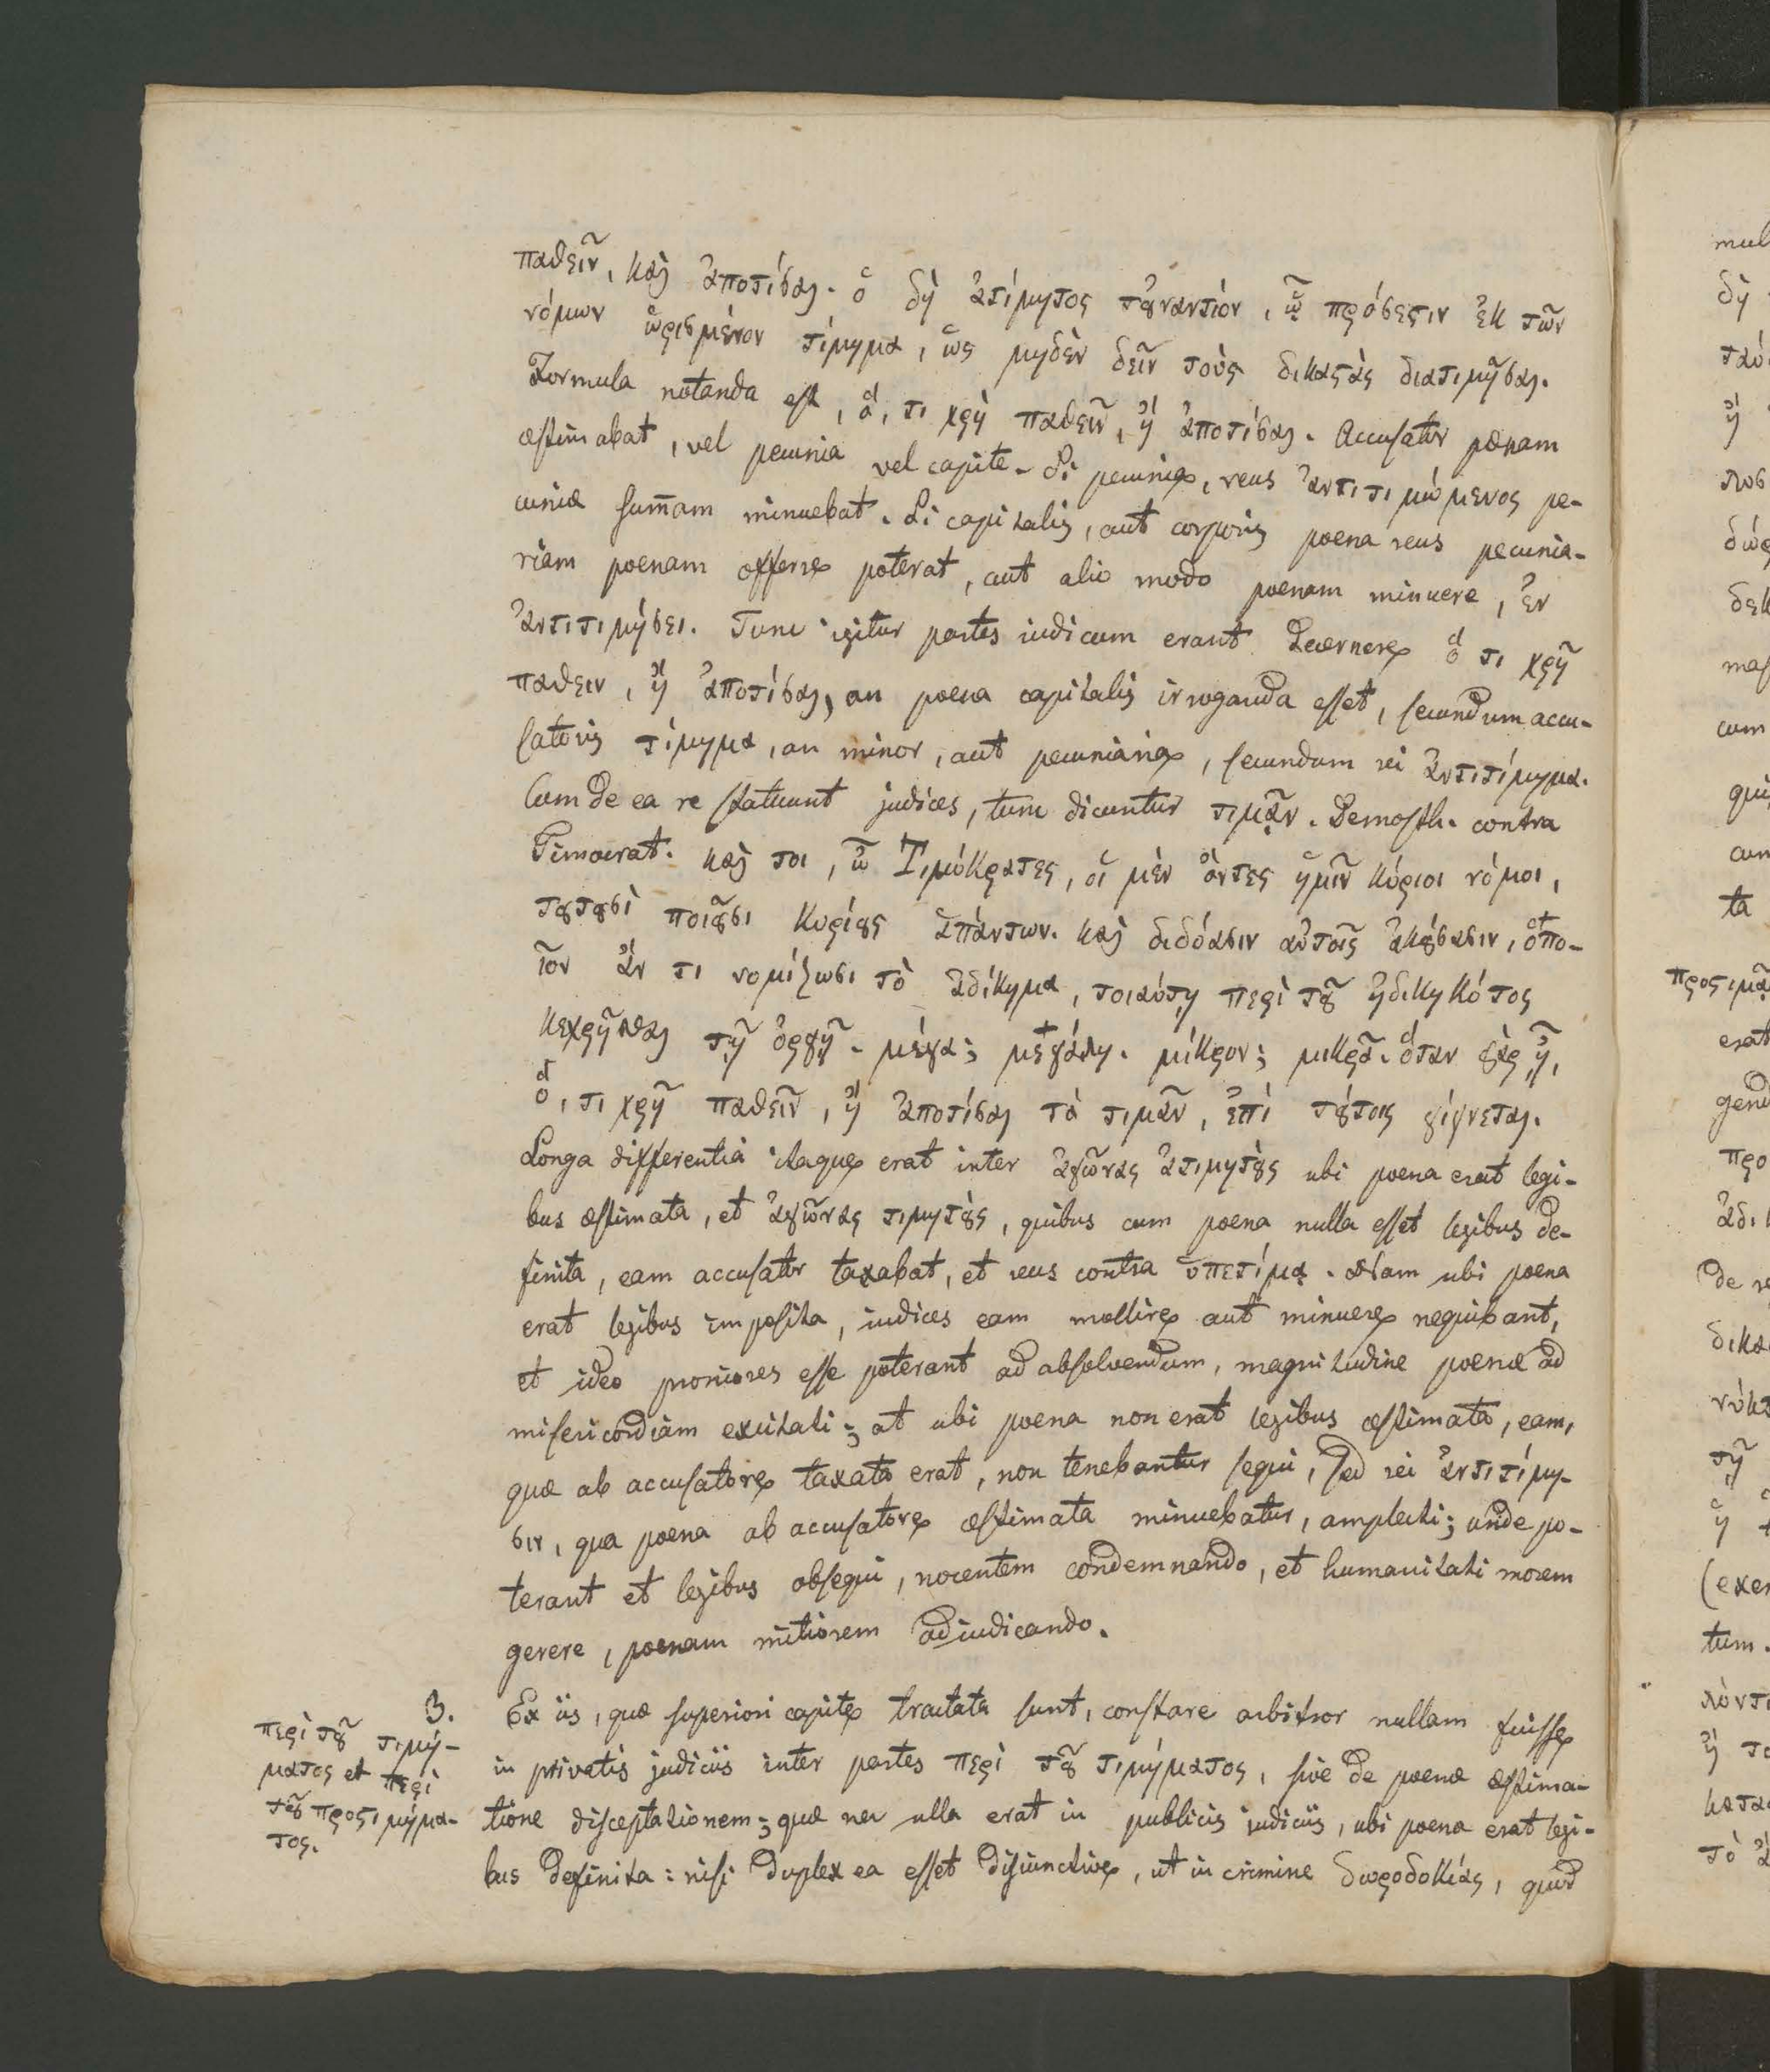 παθεῖν, καὶ ἀποτίσαι. ὁ δὴ ἀτίμητος τοὐναντίον, ᾧ πρόσεστιν ἐκ τῶν
νόμων ὡρισμένον τίμημα, ὡς μηδὲν δεῖν τοὺς δικαστὰς διατιμῆσαι.
Formula notanda est, ὅ, τι χρὴ παθεῖν, ἢ ἀποτίσαι. Accusator pœnam
æstimabat, vel pecunia vel capite. Si pecunia, reus ἀντιτιμώμενος pe-
cuniæ sum̄am minuebat. Si capitalis, aut corporis poena reus pecunia-
riam poenam offerre poterat, aut alio modo poenam minuere, ἐν
ἀντιτιμήσει. Tunc igitur partes iudicum erant decernere ὅ τι χρῆ
παθειν, ἢ ἀποτίσαι, an poena capitalis irroganda esset, secundum accu-
satoris τίμημα, an minor, aut pecuniaria, secundum rei ἀντιτίμημα.
Cum de ea re statuunt judices, tunc dicuntur τιμᾷν. Demosth. contra
Timocrat. καὶ τοι, ὦ Τιμόκρατες, οἱ μὲν ὄντες ἡμῖν κύριοι νόμοι,
τουτουσὶ ποιοῦσι κυρίους ἁπάντων. καὶ διδόασιν αὐτοῖς ἀκούσασιν, ὁπο-
ῖον ἄν τι νομίζωσι τὸ ἀδίκημα, τοιαύτῃ περὶ τοῦ ἠδικηκότος
κεχρῆσθαι τῇ ὀργῇ. μέγα; μεγάλῃ. μίκρον; μικρᾷ. ὅταν γὰρ ᾖ,
ὅ, τι χρῆ παθεῖν, ἢ ἀποτίσαι τὸ τιμᾶν, ἐπί τούτοις γίγνεται.
Longa differentia itaque erat inter ἀγῶνας ἀτιμητοὺς ubi poena erat legi-
bus æstimata, et ἀγῶνας τιμητοὺς, quibus cum poena nulla esset legibus de-
finita, eam accusator taxabat, et reus contra ὑπετίμα. Nam ubi poena
erat legibus imposita, iudices eam mollire aut minuere nequibant,
et ideo proniores esse poterant ad absolvendum, magnitudine poenæ ad
misericordiam excitati; at ubi poena non erat legibus æstimata, eam,
quæ ab accusatore taxata erat, non tenebantur sequi, sed rei ἀντιτίμη-
σιν, qua poena ab accusatore æstimata minuebatur, amplecti; unde po-
terant et legibus obsequi, nocentem condemnando, et humanitati morem
gerere, poenam mitiorem adiudicando.
3.
περὶ τοῦ τιμή-
ματος et περὶ
τοῦ προστιμήμα-
τος.
Ex iis, quæ superiori capite tractata sunt, constare arbitror nullam fuisse
in privatis judiciis inter partes περὶ τοῦ τιμήματος, sive de poenæ æstima-
tione disceptationem; quæ nec ulla erat in publicis iudiciis, ubi poena erat legi-
bus definita: nisi duplex ea esset disiunctive, ut in crimine δωροδοκίας, quod